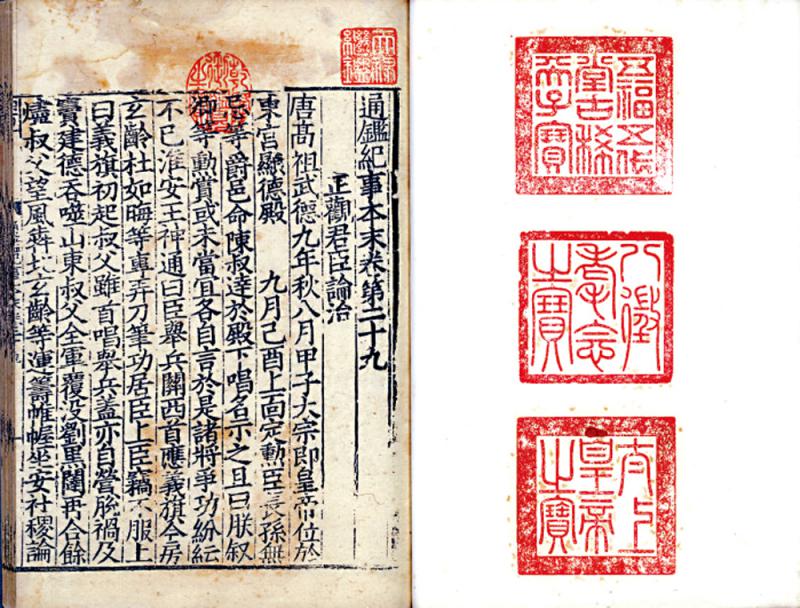 天祿繼鑑
乾隆御覽之寶
通鑑紀事本末卷第二十九
正觀君臣論治
唐高祖武德九年秋八月甲子太宗即皇帝位於
東宮顯德殿 九月己酉上面定勳臣長孫無
忌等爵邑命陳叔達於殿下唱名示之且曰朕叙
卿等勳賞或未當宜各自言於是諸將爭功紛紜
不已淮安王神通曰臣舉兵關西首應義旗今房
玄齡杜如晦等專弄刀筆功居臣上臣竊不服上
曰義旗初起叔父雖首唱舉兵蓋亦自營脫禍及
竇建德吞噬山東叔父全軍覆沒劉黑闥再合餘
燼叔父望風奔北玄齡等運籌帷幄坐安社稷論
五福五代
堂古稀
天子寶
八徵
耄念
之寶
太上
皇帝
之寶